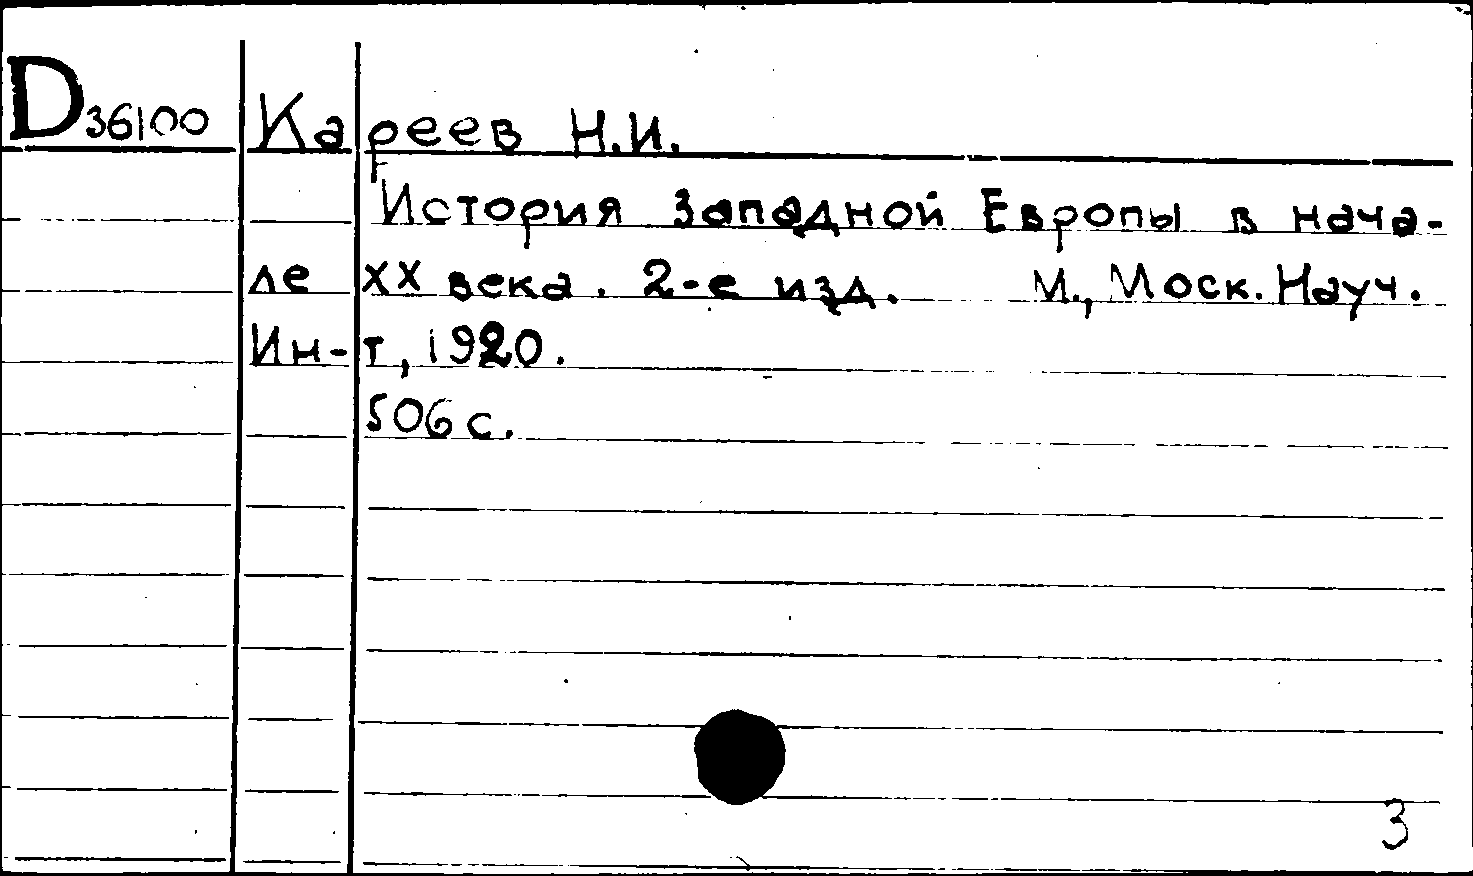 D36100 Кареев Н.И.
История Западной Европы в нача-
ле XX века. 2-е изд. М., Моск. Науч.
Ин-т, 1920.
506 с.
3